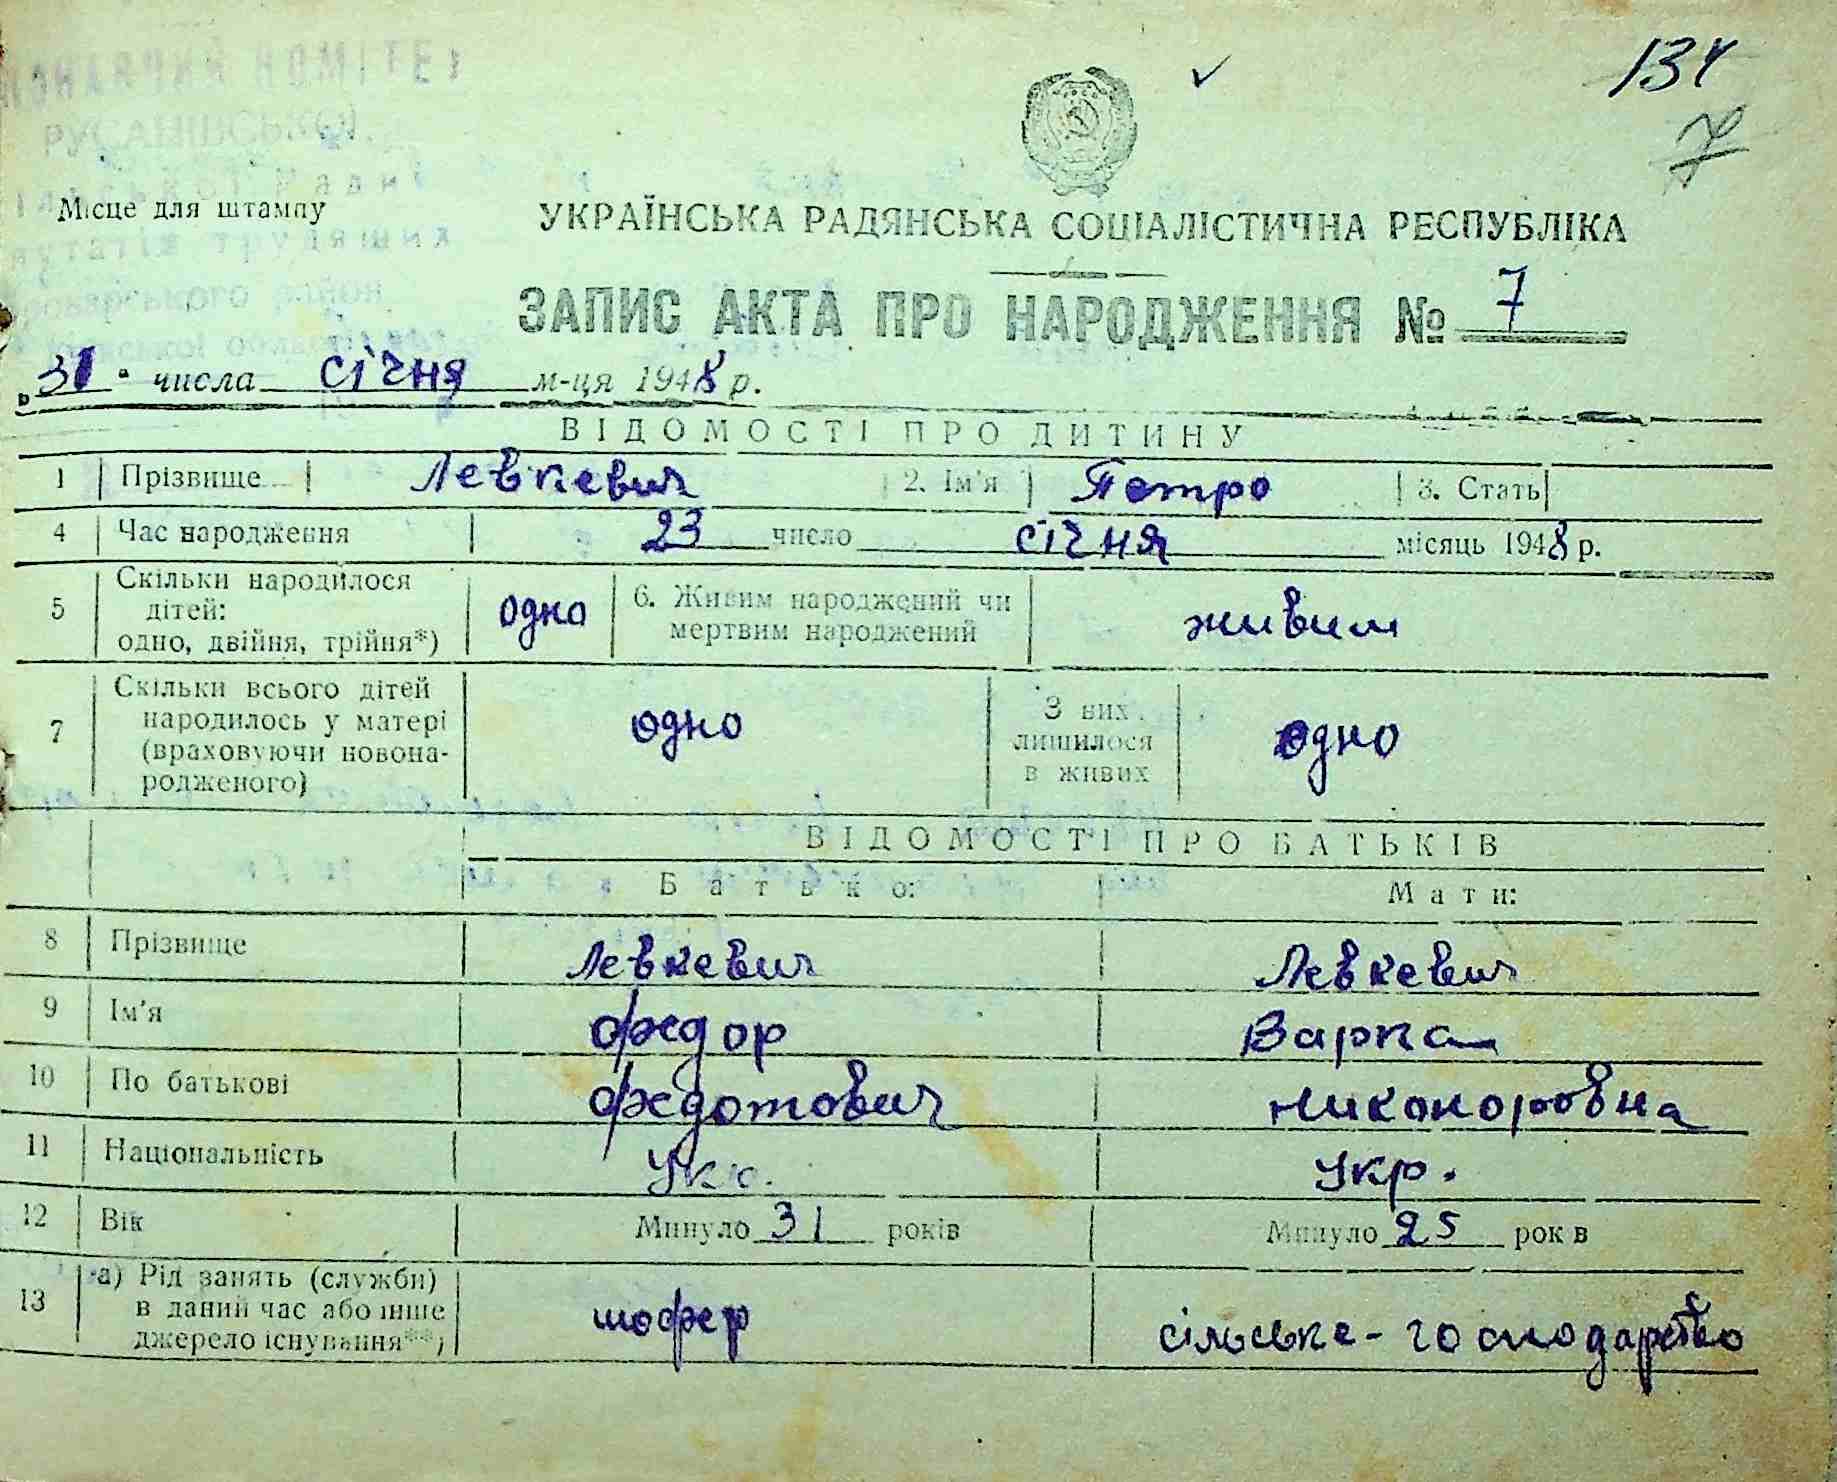 134
7
НОМІТЕТ
РУСАНІВСЬКОЇ
Ради
трудящих
Місце для штампу
УКРАЇНСЬКА РАДЯНСЬКА СОЦІАЛІСТИЧНА РЕСПУБЛІКА
ЗАПИС АКТА ПРО НАРОДЖЕННЯ № 7
„31" числа січня м-ця 1948 р.
ВІДОМОСТІ ПРО ДИТИНУ
1 Прізвище Левкевич 2. Ім'я Петро 3. Стать
4 Час народження 23 число січня місяць 1948 р.
5 Скільки народилося дітей: одно, двійня, трійня*) одно 6. Живим народжений чи мертвим народжений живим
7 Скільки всього дітей народилось у матері (враховуючи новонародженого) одно З них лишилося в живих одно
ВІДОМОСТІ ПРО БАТЬКІВ
Батько: Мати:
8 Прізвище Левкевич Левкевич
9 Ім'я Федор Варка
10 По батькові Федотович Никоноровна
11 Національність Укр. Укр.
12 Вік Минуло 31 років Минуло 25 років
13 а) Рід занять (служби) в даний час або інше джерело існування**) шофер сільське-господарство